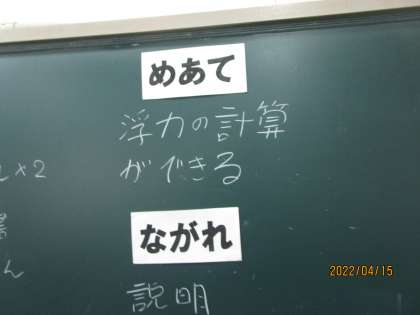 めあて
浮力の計算
ができる
ながれ
説明
×2
ん
2022/04/15